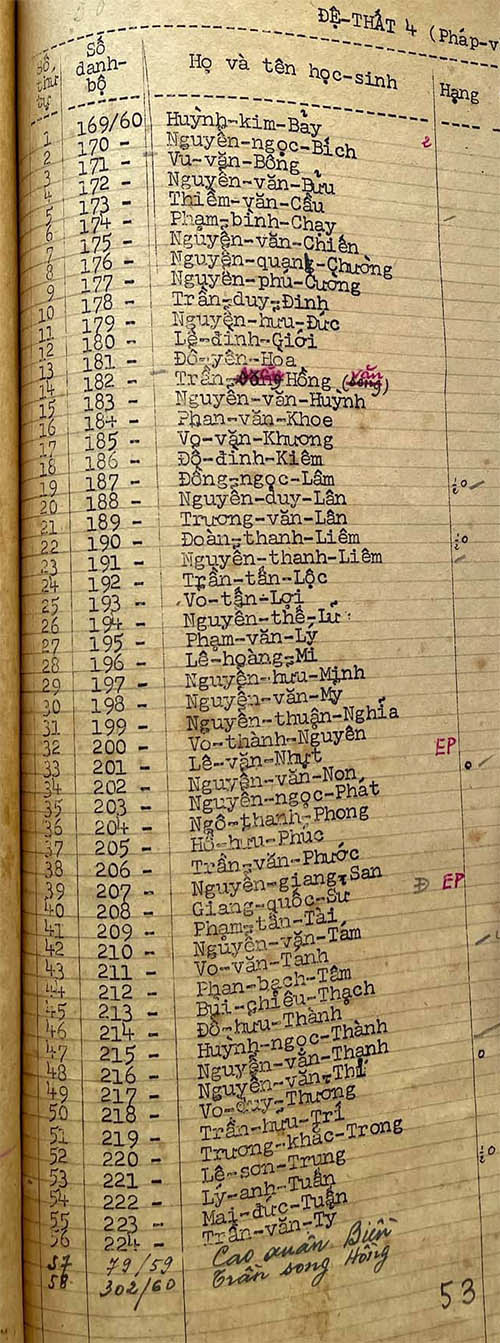 ĐỆ-THẤT 4 (Pháp-v
Số thứ tự Số danh-bộ Họ và tên học-sinh Hạng
1 169/60 Huỳnh-kim-Bảy
2 170 - Nguyễn-ngọc-Bích
3 171 - Vu-văn-Bông
4 172 - Nguyễn-văn-Bửu
5 173 - Thiềm-văn-Cầu
6 174 - Phạm-bình-Chay
7 175 - Nguyễn-văn-Chiến
8 176 - Nguyễn-quang-Chương
9 177 - Nguyễn-phú-Cường
10 178 - Trần-duy-Định
11 179 - Nguyễn-hưu-Đức
12 180 - Lê-đình-Giới
13 181 - Đỗ-yên-Hòa
14 182 - Trần- Hồng (văn)
15 183 - Nguyễn-văn-Huỳnh
16 184 - Phan-văn-Khoe
17 185 - Vo-văn-Khương
18 186 - Đỗ-đình-Kiêm
19 187 - Đồng-ngọc-Lâm
20 188 - Nguyễn-duy-Lân
21 189 - Trương-văn-Lân
22 190 - Đoàn-thanh-Liêm
23 191 - Nguyễn-thanh-Liêm
24 192 - Trần-tấn-Lộc
25 193 - Vo-tấn-Lợi
26 194 - Nguyễn-thế-Lữ
27 195 - Phạm-văn-Lý
28 196 - Lê-hoàng-Mi
29 197 - Nguyễn-hưu-Minh
30 198 - Nguyễn-văn-Mỹ
31 199 - Nguyễn-thuận-Nghĩa
32 200 - Vo-thành-Nguyên EP
33 201 - Lê-văn-Nhựt
34 202 - Nguyễn-văn-Non
35 203 - Nguyễn-ngọc-Phát
36 204 - Ngô-thanh-Phong
37 205 - Hồ-hưu-Phúc
38 206 - Trần-văn-Phước
39 207 - Nguyễn-giang-San Đ EP
40 208 - Giang-quốc-Sư
41 209 - Phạm-tấn-Tài
42 210 - Nguyễn-văn-Tám
43 211 - Vo-văn-Tánh
44 212 - Phan-bạch-Tâm
45 213 - Bùi-chiêu-Thạch
46 214 - Đỗ-hưu-Thành
47 215 - Huỳnh-ngọc-Thành
48 216 - Nguyễn-văn-Thanh
49 217 - Nguyễn-văn-Thi
50 218 - Vo-duy-Thương
51 219 - Trần-hưu-Trí
52 220 - Trương-khắc-Trong
53 221 - Lê-sơn-Trung
54 222 - Lý-anh-Tuấn
55 223 - Mai-đức-Tuấn
56 224 - Trần-văn-Tý
57 79/59 Cao xuân Biên
58 302/60 Trần song Hồng
53